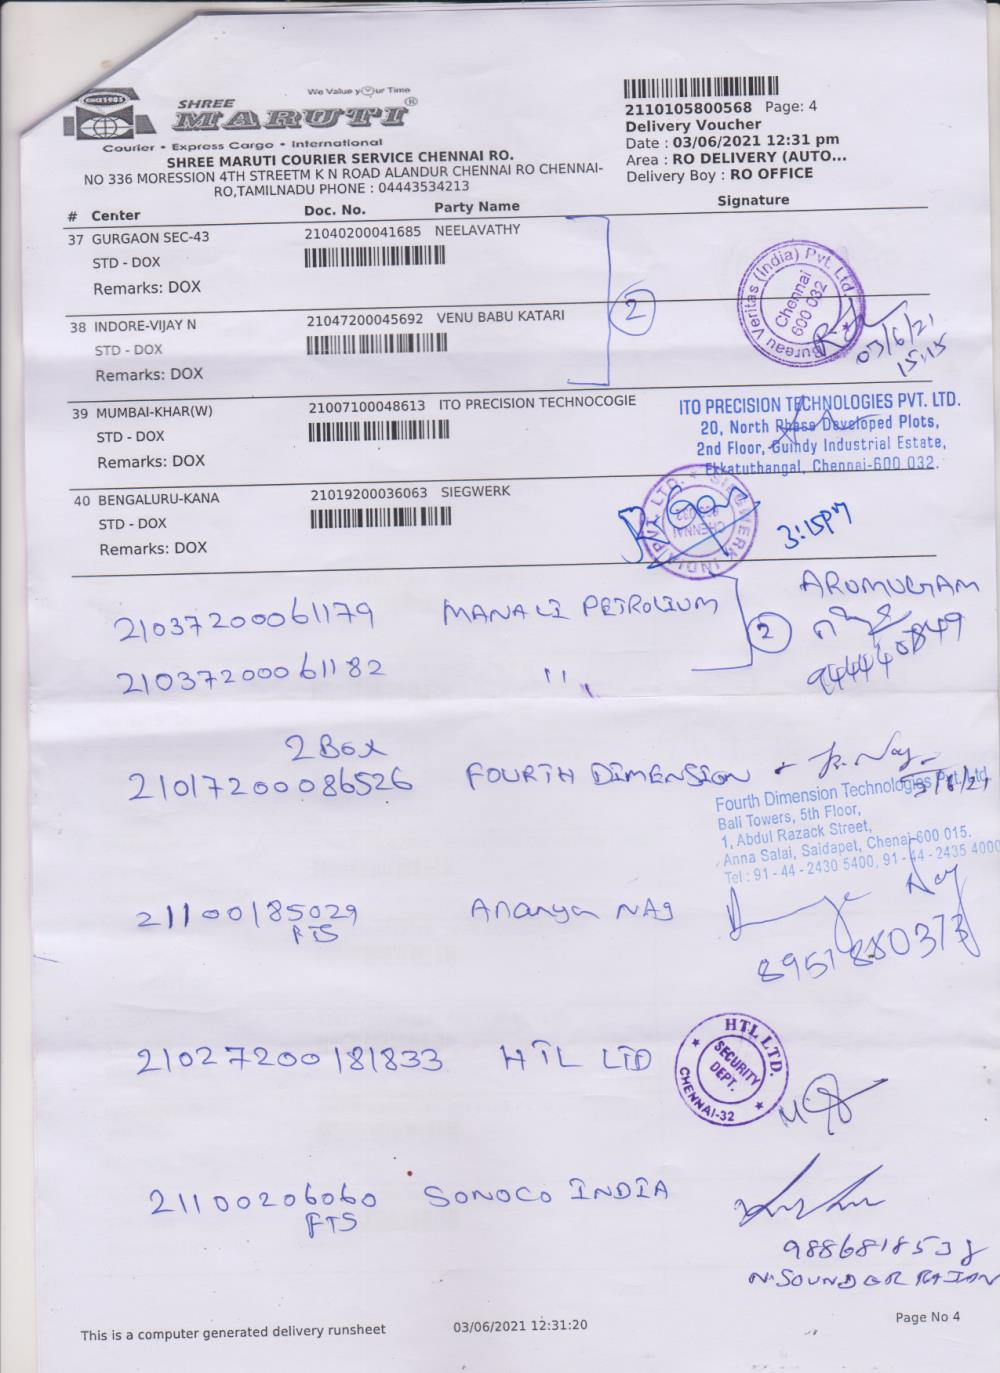 We Value your Time
SINCE 1985
SHREE
MARUTI ®
Courier • Express Cargo • International
SHREE MARUTI COURIER SERVICE CHENNAI RO.
NO 336 MORESSION 4TH STREETM K N ROAD ALANDUR CHENNAI RO CHENNAI-
RO,TAMILNADU PHONE : 04443534213
2110105800568 Page: 4
Delivery Voucher
Date : 03/06/2021 12:31 pm
Area : RO DELIVERY (AUTO...
Delivery Boy : RO OFFICE
# Center Doc. No. Party Name Signature
37 GURGAON SEC-43 21040200041685 NEELAVATHY
STD - DOX
Remarks: DOX
Bureau Veritas (India) Pvt. Ltd.
Chennai
600 032
2
03/6/21
15:15
38 INDORE-VIJAY N 21047200045692 VENU BABU KATARI
STD - DOX
Remarks: DOX
39 MUMBAI-KHAR(W) 21007100048613 ITO PRECISION TECHNOCOGIE
STD - DOX
Remarks: DOX
ITO PRECISION TECHNOLOGIES PVT. LTD.
20, North Phase Developed Plots,
2nd Floor, Guindy Industrial Estate,
Ekkatuthangal, Chennai-600 032.
40 BENGALURU-KANA 21019200036063 SIEGWERK
STD - DOX
Remarks: DOX
SIEGWERK INDIA PVT. LTD.
CHENNAI
3:15PM
21037200061179 MANALI PETROLIUM
2
ARUMUGAM
9444440849
21037200061182 "
2 Box
21017200086526 FOURTH DIMENSION
Fourth Dimension Technologies Pvt. Ltd.
Bali Towers, 5th Floor,
1, Abdul Razack Street,
Anna Salai, Saidapet, Chenai-600 015.
Tel : 91 - 44 - 2430 5400, 91 - 44 - 2435 4000
21100185029 Ananya NAg
FTS
8957880373
21027200181833 HTL LTD
HTL LTD.
SECURITY
DEPT.
CHENNAI-32
21100206060 SONOCO INDIA
FTS
9886818538
N.SOUNDER RAJAN
This is a computer generated delivery runsheet 03/06/2021 12:31:20 Page No 4